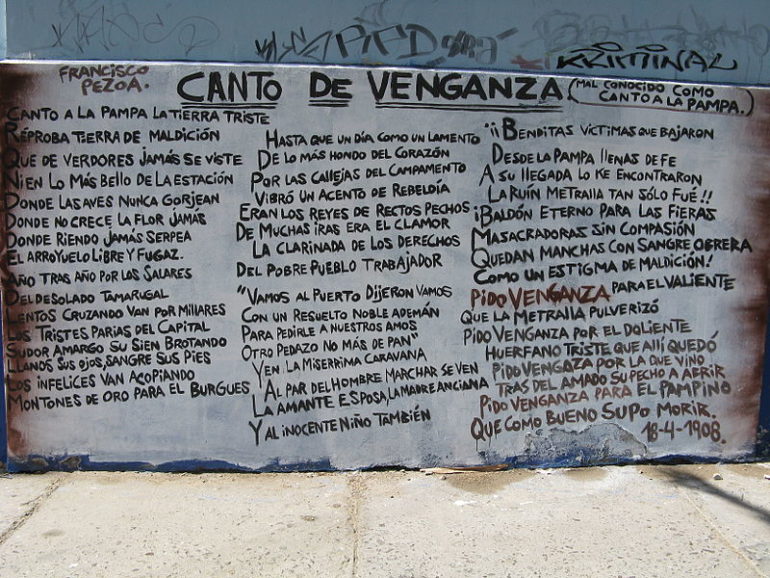 KRIMINAL
FRANCISCO
PEZOA.
CANTO DE VENGANZA (MAL CONOCIDO COMO
CANTO A LA PAMPA.)
CANTO A LA PAMPA LA TIERRA TRISTE
RÉPROBA TIERRA DE MALDICIÓN
QUE DE VERDORES JAMÁS SE VISTE
NI EN LO MÁS BELLO DE LA ESTACIÓN
DONDE LAS AVES NUNCA GORJEAN
DONDE NO CRECE LA FLOR JAMÁS
DONDE RIENDO JAMÁS SERPEA
EL ARROYUELO LIBRE Y FUGAZ.
AÑO TRAS AÑO POR LOS SALARES
DEL DESOLADO TAMARUGAL
LENTOS CRUZANDO VAN POR MILLARES
LOS TRISTES PARIAS DEL CAPITAL
SUDOR AMARGO SU SIEN BROTANDO
LLANOS SUS OJOS, SANGRE SUS PIES
LOS INFELICES VAN ACOPIANDO
MONTONES DE ORO PARA EL BURGUES
HASTA QUE UN DÍA COMO UN LAMENTO
DE LO MÁS HONDO DEL CORAZÓN
POR LAS CALLEJAS DEL CAMPAMENTO
VIBRÓ UN ACENTO DE REBELDÍA
ERAN LOS REYES DE RECTOS PECHOS
DE MUCHAS IRAS ERA EL CLAMOR
LA CLARINADA DE LOS DERECHOS
DEL POBRE PUEBLO TRABAJADOR
"VAMOS AL PUERTO DIJERON VAMOS
CON UN RESUELTO NOBLE ADEMÁN
PARA PEDIRLE A NUESTROS AMOS
OTRO PEDAZO NO MÁS DE PAN"
Y EN LA MISERRIMA CARAVANA
AL PAR DEL HOMBRE MARCHAR SE VEN
LA AMANTE ESPOSA, LA MADRE ANCIANA
Y AL INOCENTE NIÑO TAMBIÉN
¡¡BENDITAS VÍCTIMAS QUE BAJARON
DESDE LA PAMPA LLENAS DE FE
A SU LLEGADA LO KE ENCONTRARON
LA RUÍN METRALLA TAN SÓLO FUÉ!!
¡BALDÓN ETERNO PARA LAS FIERAS
MASACRADORAS SIN COMPASIÓN
QUEDAN MANCHAS CON SANGRE OBRERA
COMO UN ESTIGMA DE MALDICIÓN!
PIDO VENGANZA PARA EL VALIENTE
QUE LA METRALLA PULVERIZÓ
PIDO VENGANZA POR EL DOLIENTE
HUERFANO TRISTE QUE ALLÍ QUEDÓ
PIDO VENGAZA POR LA QUE VINO
TRAS DEL AMADO SU PECHO A ABRIR
PIDO VENGANZA PARA EL PAMPINO
QUE COMO BUENO SUPO MORIR.
18-4-1908.